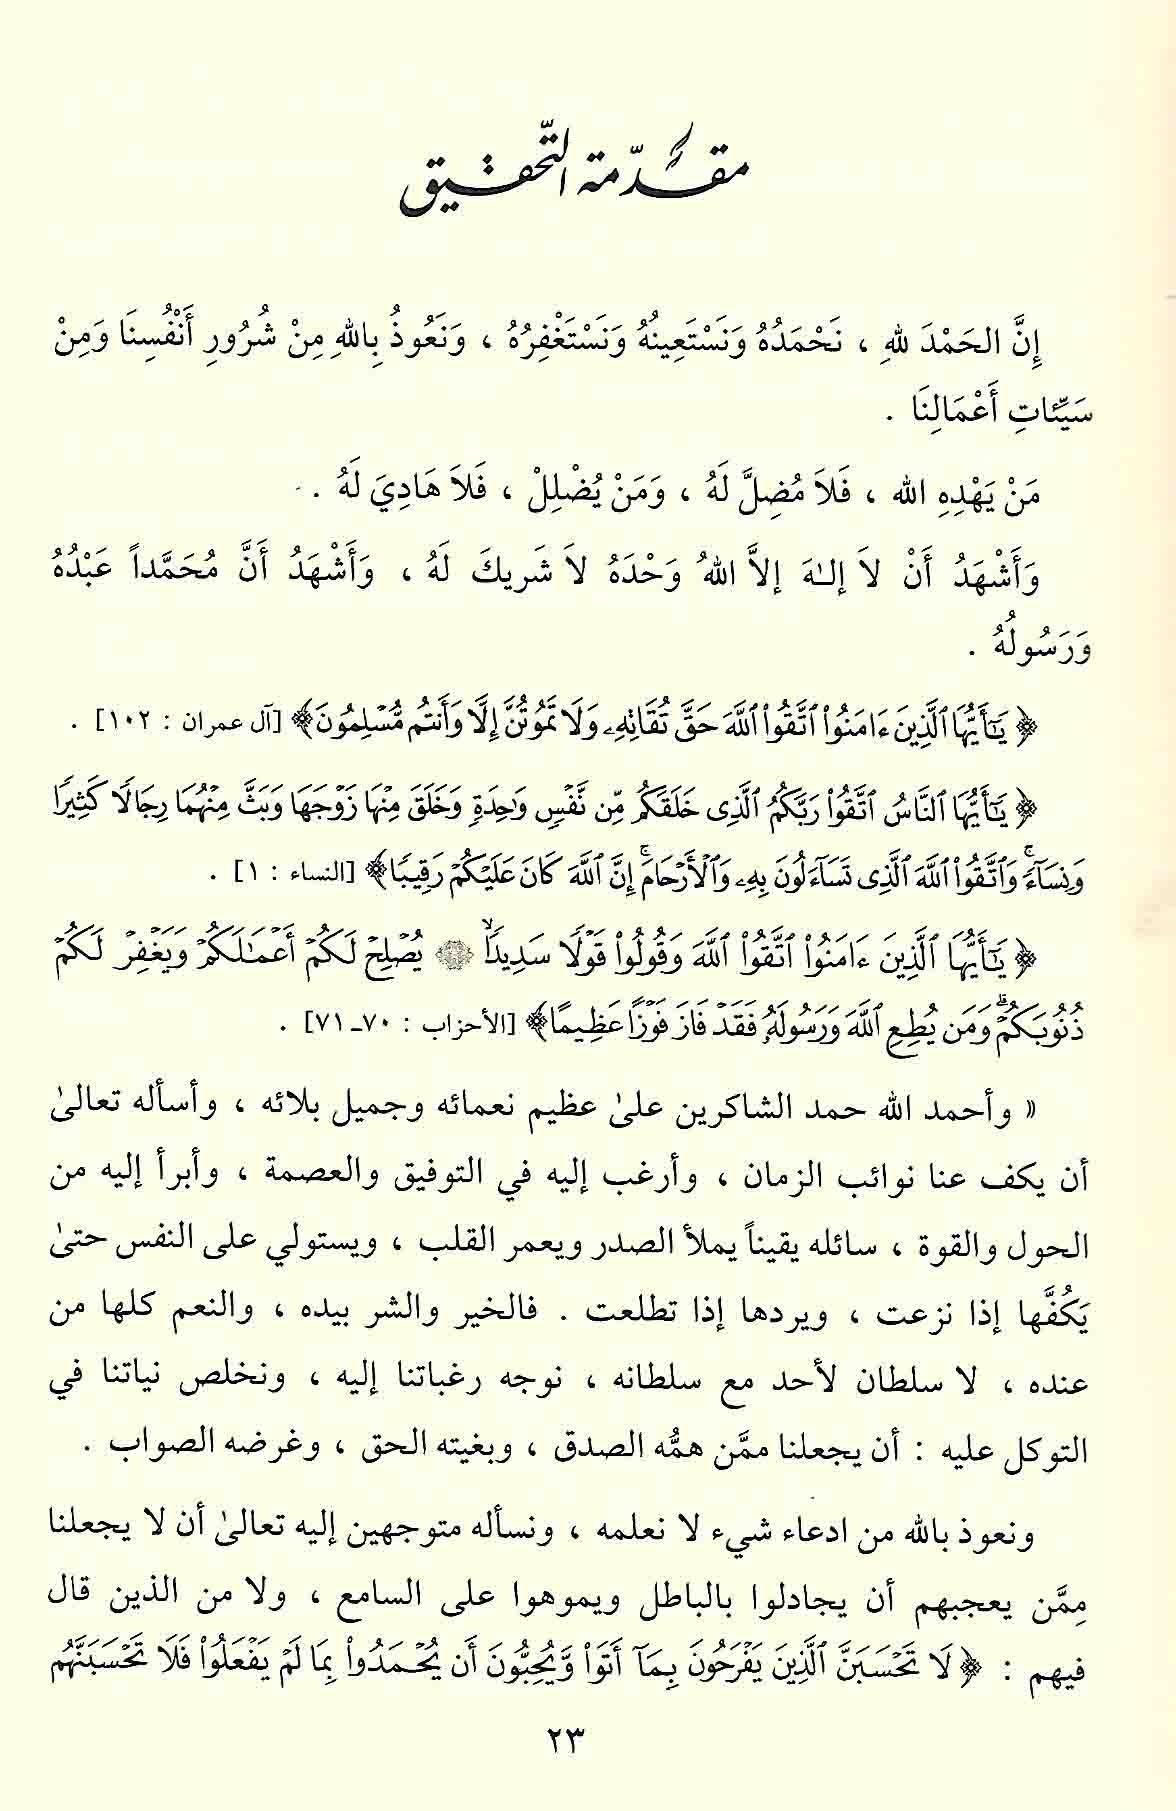 مقدّمة التّحقيق
إِنَّ الحَمْدَ للهِ ، نَحْمَدُهُ وَنَسْتَعِينُهُ وَنَسْتَغْفِرُهُ ، وَنَعُوذُ بِاللهِ مِنْ شُرُورِ أَنْفُسِنَا وَمِنْ
سَيِّئاتِ أَعْمَالِنَا .
مَنْ يَهْدِهِ الله ، فَلاَ مُضِلَّ لَهُ ، وَمَنْ يُضْلِلْ ، فَلاَ هَادِيَ لَهُ .
وَأَشْهَدُ أَنْ لاَ إلـٰهَ إلاَّ اللهُ وَحْدَهُ لاَ شَرِيكَ لَهُ ، وَأَشْهَدُ أَنَّ مُحَمَّداً عَبْدُهُ
وَرَسُولُهُ .
﴿ يَٰٓأَيُّهَا ٱلَّذِينَ ءَامَنُوا۟ ٱتَّقُوا۟ ٱللَّهَ حَقَّ تُقَاتِهِۦ وَلَا تَمُوتُنَّ إِلَّا وَأَنتُم مُّسْلِمُونَ ﴾ [آل عمران : ١٠٢] .
﴿ يَٰٓأَيُّهَا ٱلنَّاسُ ٱتَّقُوا۟ رَبَّكُمُ ٱلَّذِى خَلَقَكُم مِّن نَّفْسٍ وَٰحِدَةٍ وَخَلَقَ مِنْهَا زَوْجَهَا وَبَثَّ مِنْهُمَا رِجَالًا كَثِيرًا
وَنِسَآءً ۚ وَٱتَّقُوا۟ ٱللَّهَ ٱلَّذِى تَسَآءَلُونَ بِهِۦ وَٱلْأَرْحَامَ ۚ إِنَّ ٱللَّهَ كَانَ عَلَيْكُمْ رَقِيبًا ﴾ [النساء : ١] .
﴿ يَٰٓأَيُّهَا ٱلَّذِينَ ءَامَنُوا۟ ٱتَّقُوا۟ ٱللَّهَ وَقُولُوا۟ قَوْلًا سَدِيدًا ۙ يُصْلِحْ لَكُمْ أَعْمَٰلَكُمْ وَيَغْفِرْ لَكُمْ
ذُنُوبَكُمْ ۗ وَمَن يُطِعِ ٱللَّهَ وَرَسُولَهُۥ فَقَدْ فَازَ فَوْزًا عَظِيمًا ﴾ [الأحزاب : ٧٠ـ٧١] .
« وأحمد الله حمد الشاكرين علىٰ عظيم نعمائه وجميل بلائه ، وأسأله تعالىٰ
أن يكف عنا نوائب الزمان ، وأرغب إليه في التوفيق والعصمة ، وأبرأ إليه من
الحول والقوة ، سائله يقيناً يملأ الصدر ويعمر القلب ، ويستولي على النفس حتىٰ
يَكُفَّها إذا نزعت ، ويردها إذا تطلعت . فالخير والشر بيده ، والنعم كلها من
عنده ، لا سلطان لأحد مع سلطانه ، نوجه رغباتنا إليه ، ونخلص نياتنا في
التوكل عليه : أن يجعلنا ممَّن همُّه الصدق ، وبغيته الحق ، وغرضه الصواب .
ونعوذ بالله من ادعاء شيء لا نعلمه ، ونسأله متوجهين إليه تعالىٰ أن لا يجعلنا
مِمَّن يعجبهم أن يجادلوا بالباطل ويموهوا على السامع ، ولا من الذين قال
فيهم : ﴿ لَا تَحْسَبَنَّ ٱلَّذِينَ يَفْرَحُونَ بِمَآ أَتَوا۟ وَّيُحِبُّونَ أَن يُحْمَدُوا۟ بِمَا لَمْ يَفْعَلُوا۟ فَلَا تَحْسَبَنَّهُم
٢٣